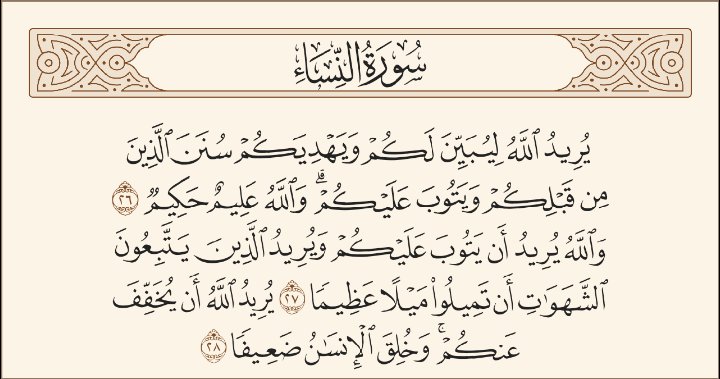 سُورَةُ النِّسَاءِ
يُرِيدُ ٱللَّهُ لِيُبَيِّنَ لَكُمۡ وَيَهۡدِيَكُمۡ سُنَنَ ٱلَّذِينَ
مِن قَبۡلِكُمۡ وَيَتُوبَ عَلَيۡكُمۡۗ وَٱللَّهُ عَلِيمٌ حَكِيمٞ ٢٦
وَٱللَّهُ يُرِيدُ أَن يَتُوبَ عَلَيۡكُمۡ وَيُرِيدُ ٱلَّذِينَ يَتَّبِعُونَ
ٱلشَّهَوَٰتِ أَن تَمِيلُواْ مَيۡلًا عَظِيمٗا ٢٧ يُرِيدُ ٱللَّهُ أَن يُخَفِّفَ
عَنكُمۡۚ وَخُلِقَ ٱلۡإِنسَٰنُ ضَعِيفٗا ٢٨